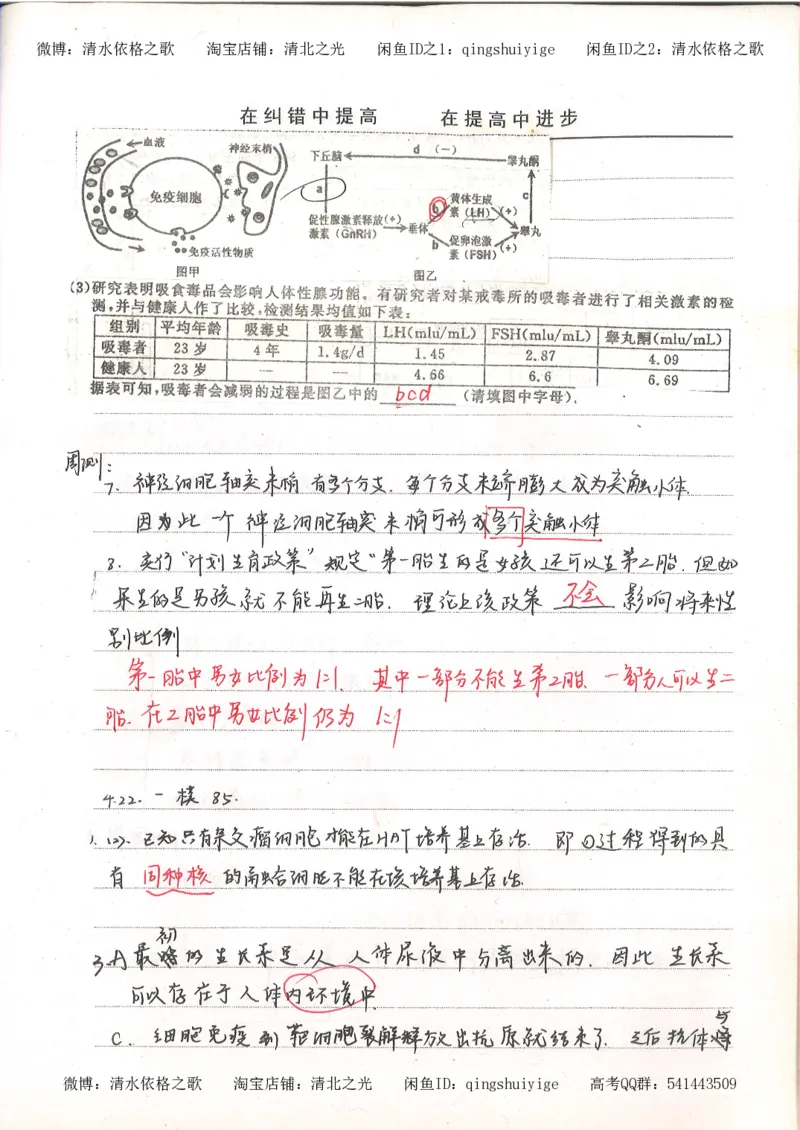 微博：清水依格之歌 淘宝店铺：清北之光 闲鱼ID之1：qingshuiyige 闲鱼ID之2：清水依格之歌
在纠错中提高 在提高中进步
血液 神经末梢
免疫细胞
免疫活性物质
图甲
下丘脑 d (一) 睾丸酮
a
促性腺激素释放(+)
激素(GnRH) 垂体
b 黄体生成
素(LH) (+)
c
睾丸
b 促卵泡激
素(FSH) (+)
图乙
(3)研究表明吸食毒品会影响人体性腺功能。有研究者对某戒毒所的吸毒者进行了相关激素的检
测,并与健康人作了比较,检测结果均值如下表:
组别 平均年龄 吸毒史 吸毒量 LH(mlu/mL) FSH(mlu/mL) 睾丸酮(mlu/mL)
吸毒者 23岁 4年 1.4g/d 1.45 2.87 4.09
健康人 23岁 — — 4.66 6.6 6.69
据表可知,吸毒者会减弱的过程是图乙中的 bcd (请填图中字母)。
周测:
7. 神经细胞轴突末梢有多个分支. 每个分支末端膨大成为突触小体.
因为此一个神经细胞轴突末梢可形成多个突触小体
8. 实行“计划生育政策”规定“第一胎生的是女孩还可以生第二胎. 但如
果生的是男孩就不能再生二胎. 理论上该政策 不会 影响将来性
别比例
第一胎中男女比例为1:1. 其中一部分不能生第2胎. 一部分人可以生二
胎. 在2胎中男女比例仍为 1:1
4.22. 一模 85.
1. (2). 已知只有杂交瘤细胞才能在HAT培养基上存活. 即①过程得到的具
有 同种核 的融合细胞不能在该培养基上存活.
3. A 最初的生长素是从人体尿液中分离出来的. 因此 生长素
可以存在于人体内环境中.
C. 细胞免疫到靶细胞裂解释放出抗原就结束了. 之后抗体与
微博：清水依格之歌 淘宝店铺：清北之光 闲鱼ID：qingshuiyige 高考QQ群：541443509